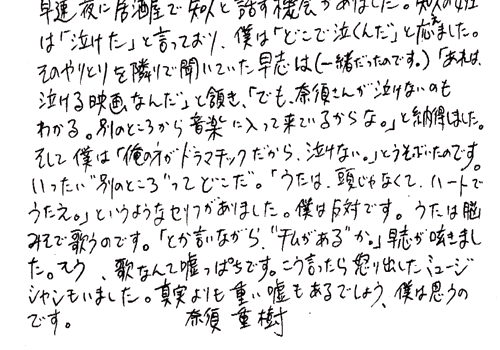 早速夜に居酒屋で知人と話す機会がありました。知人の女性
は「泣けた」と言っており、僕は「どこで泣くんだ」と応えました。
そのやりとりを隣りで聞いていた早志は(一緒だったのです。)「あれは、
泣ける映画なんだ」と頷き、「でも、奈須さんが泣けないのも
わかる。別のところから音楽に入って来ているからな。」と納得しました。
そして僕は「俺の方がドラマチックだから、泣けない。」とうそぶいたのです。
いったい"別のところ"ってどこだ。「うたは、頭じゃなくて、ハートで
うたえ。」というようなセリフがありました。僕は反対です。うたは脳
みそで歌うのです。「とか言いながら、"チムがある"か。」早志が呟きまし
た。そう、歌なんて嘘っぱちです。こう言ったら怒り出したミュージ
シャンもいました。真実よりも重い嘘もあるでしょう、僕は思うの
です。 奈須重樹